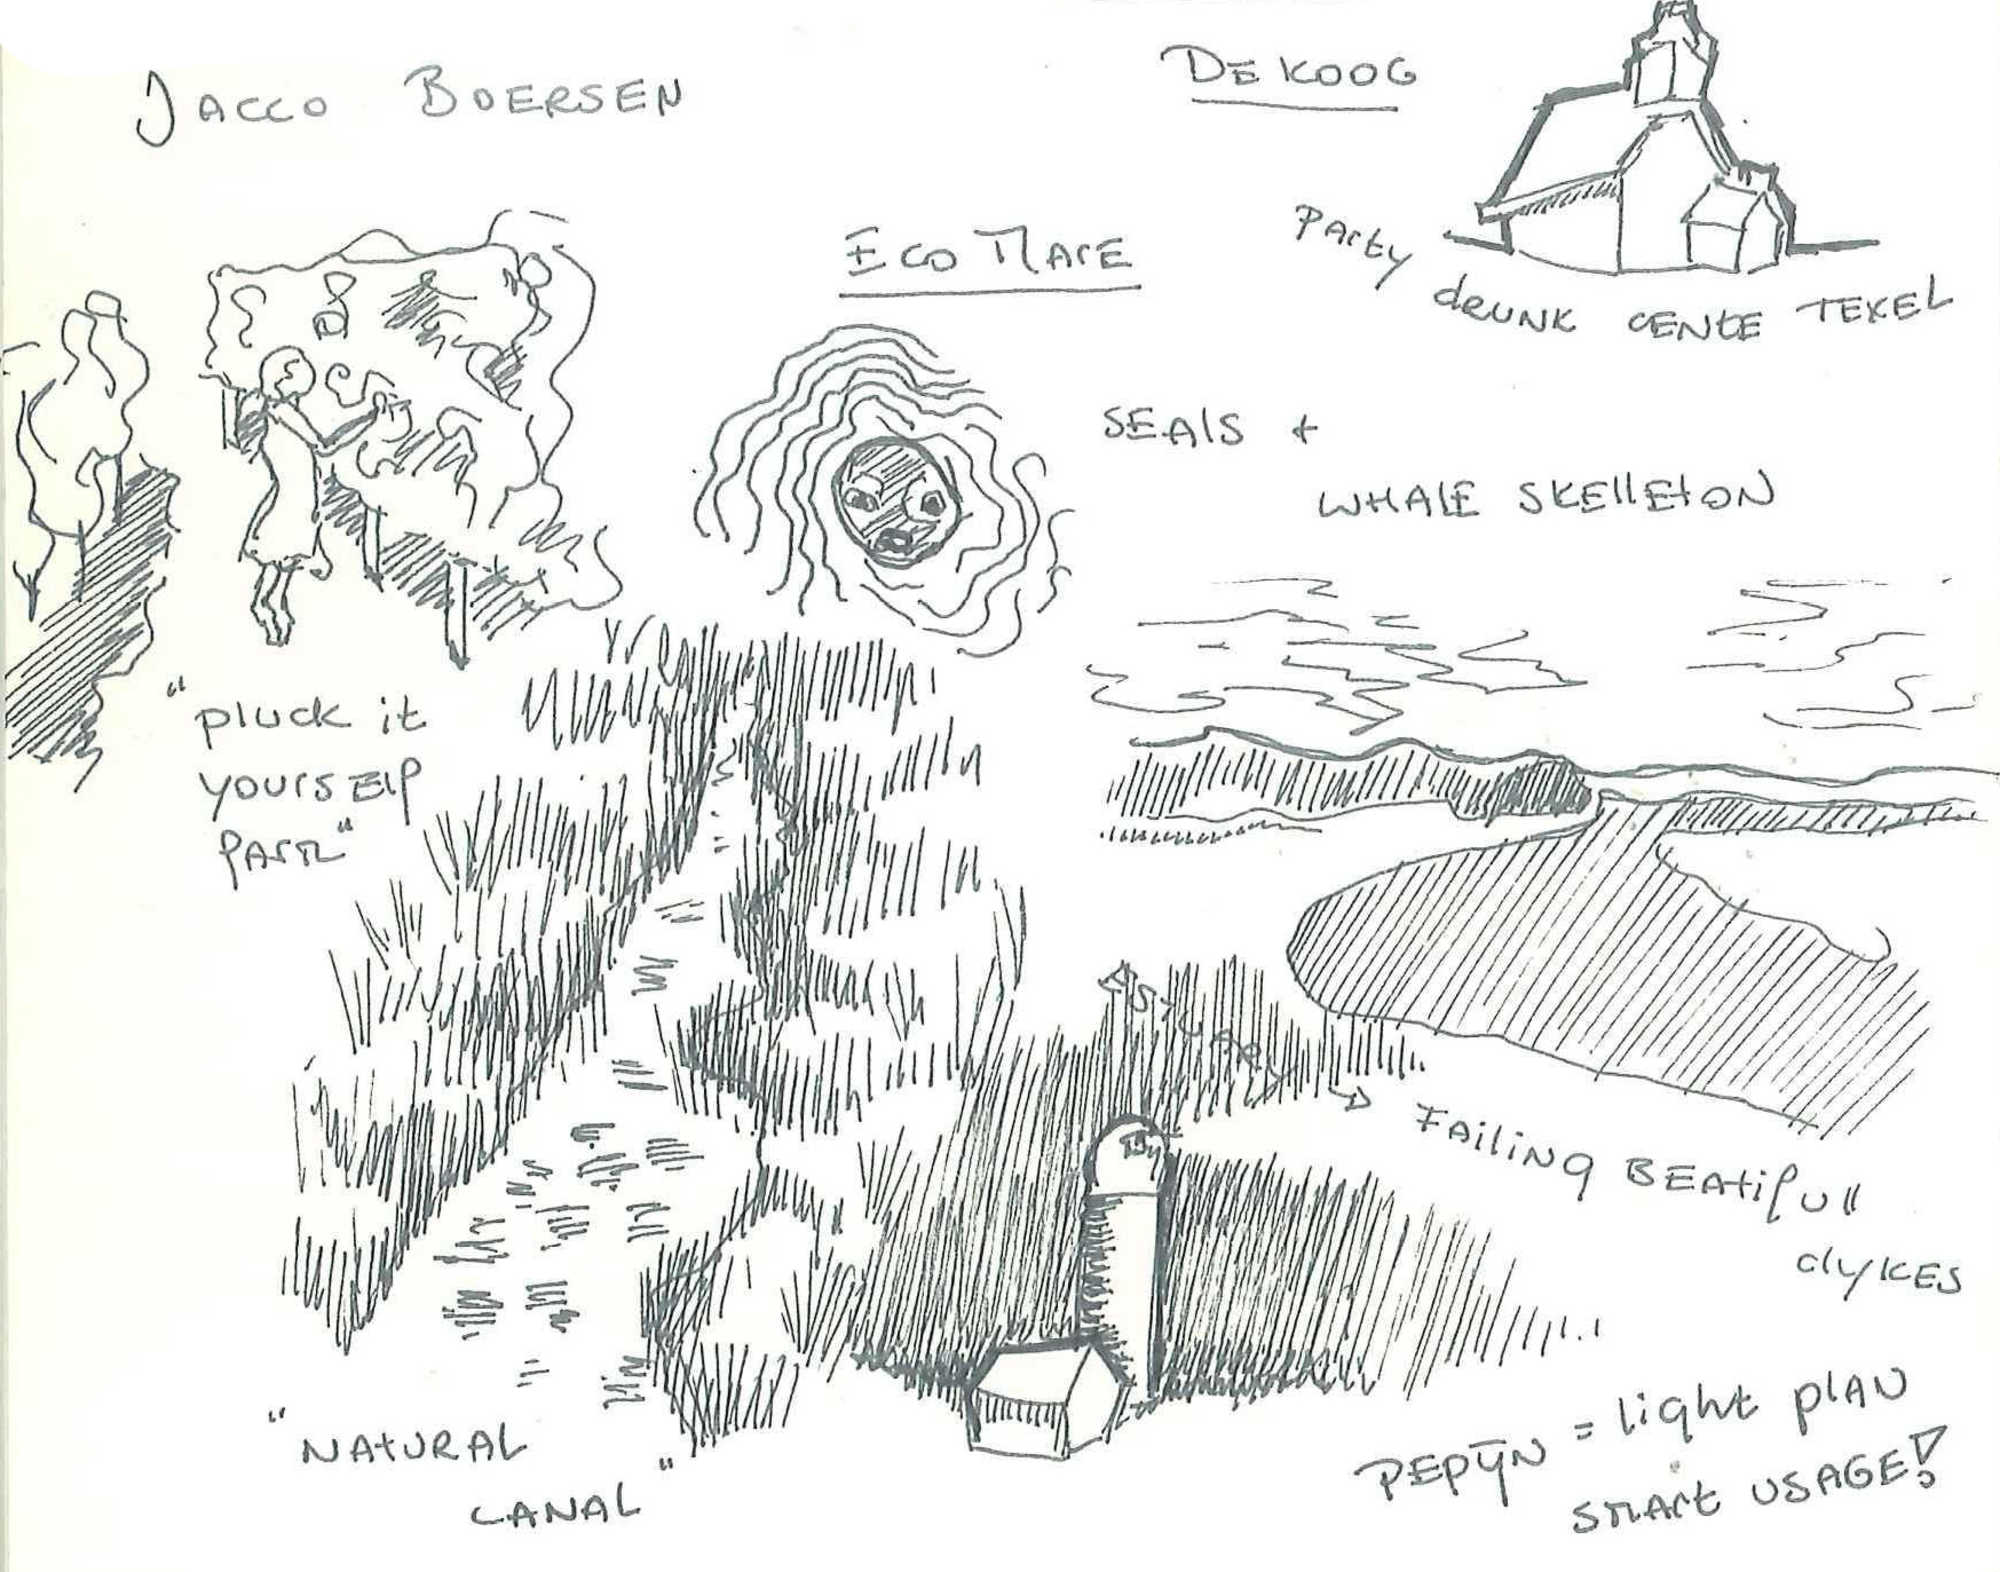 JACCO BOERSEN
DE KOOG
Party drunk cente TEXEL
ECO MARE
SEAlS +
WHALE SKELLEtON
"pluck it
yoursElf
farm"
ESTUARY → FAiliNg BEAtifull
dykes
"NAtURAL
CANAL"
PEPIJN = light plAN
smart USAGE!